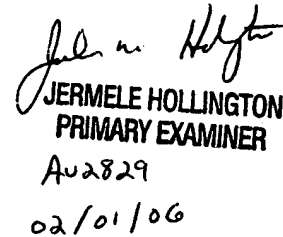 JERMELE HOLLINGTON
PRIMARY EXAMINER
AU2829
02/01/06